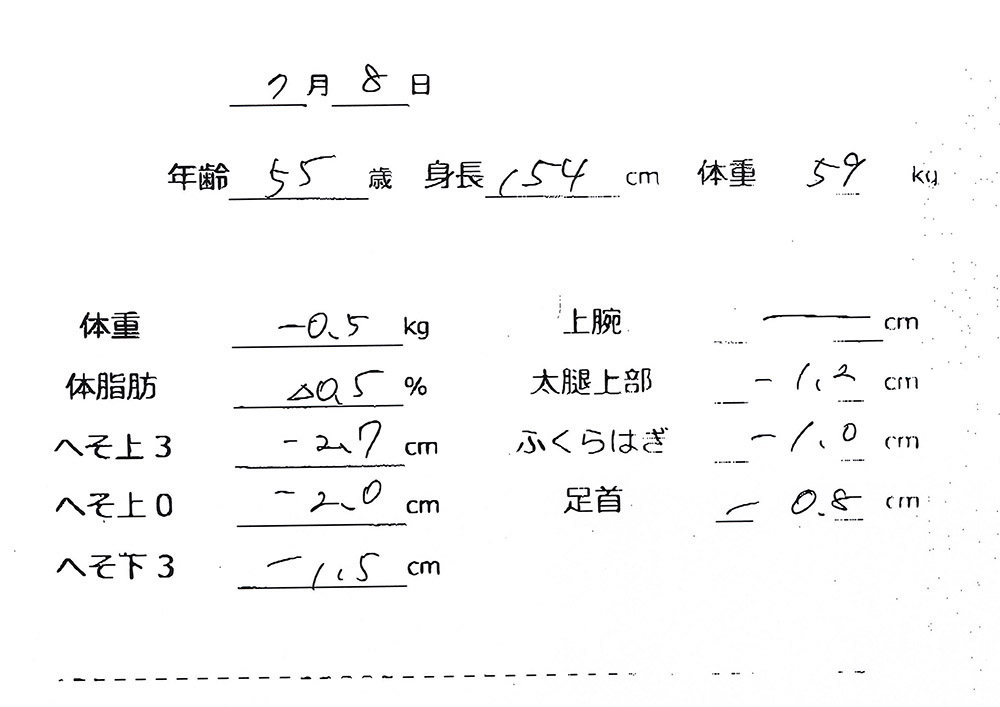 7月8日
年齢 55 歳 身長 154 cm 体重 59 kg
体重 -0.5 kg 上腕 — cm
体脂肪 △0.5 % 太腿上部 -1.2 cm
へそ上3 -2.7 cm ふくらはぎ -1.0 cm
へそ上0 -2.0 cm 足首 -0.8 cm
へそ下3 -1.5 cm